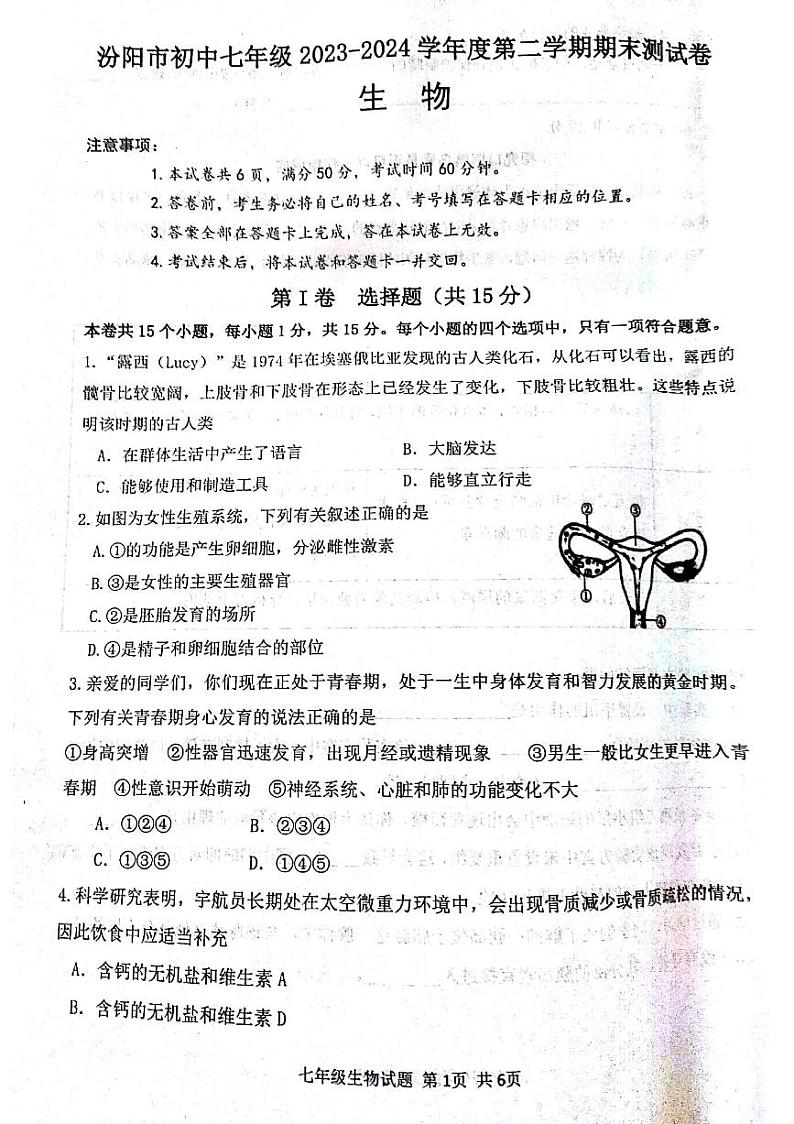 汾阳市初中七年级 2023-2024 学年度第二学期期末测试卷
生 物
注意事项：
1.本试卷共6页，满分50分，考试时间60分钟。
2.答卷前，考生务必将自己的姓名、考号填写在答题卡相应的位置。
3.答案全部在答题卡上完成，答在本试卷上无效。
4.考试结束后，将本试卷和答题卡一并交回。
第 I 卷 选择题（共 15 分）
本卷共 15 个小题，每小题 1 分，共 15 分。每个小题的四个选项中，只有一项符合题意。
1.“露西（Lucy）”是 1974 年在埃塞俄比亚发现的古人类化石，从化石可以看出，露西的
髋骨比较宽阔，上肢骨和下肢骨在形态上已经发生了变化，下肢骨比较粗壮。这些特点说
明该时期的古人类
A. 在群体生活中产生了语言 B. 大脑发达
C. 能够使用和制造工具 D. 能够直立行走
2.如图为女性生殖系统，下列有关叙述正确的是
A.①的功能是产生卵细胞，分泌雌性激素
B.③是女性的主要生殖器官
C.②是胚胎发育的场所
D.④是精子和卵细胞结合的部位
② ③
①
④
3.亲爱的同学们，你们现在正处于青春期，处于一生中身体发育和智力发展的黄金时期。
下列有关青春期身心发育的说法正确的是
①身高突增 ②性器官迅速发育，出现月经或遗精现象 ③男生一般比女生更早进入青
春期 ④性意识开始萌动 ⑤神经系统、心脏和肺的功能变化不大
A. ①②④ B. ②③④
C. ①③⑤ D. ①④⑤
4.科学研究表明，宇航员长期处在太空微重力环境中，会出现骨质减少或骨质疏松的情况，
因此饮食中应适当补充
A. 含钙的无机盐和维生素 A
B. 含钙的无机盐和维生素 D
七年级生物试题 第1页 共6页